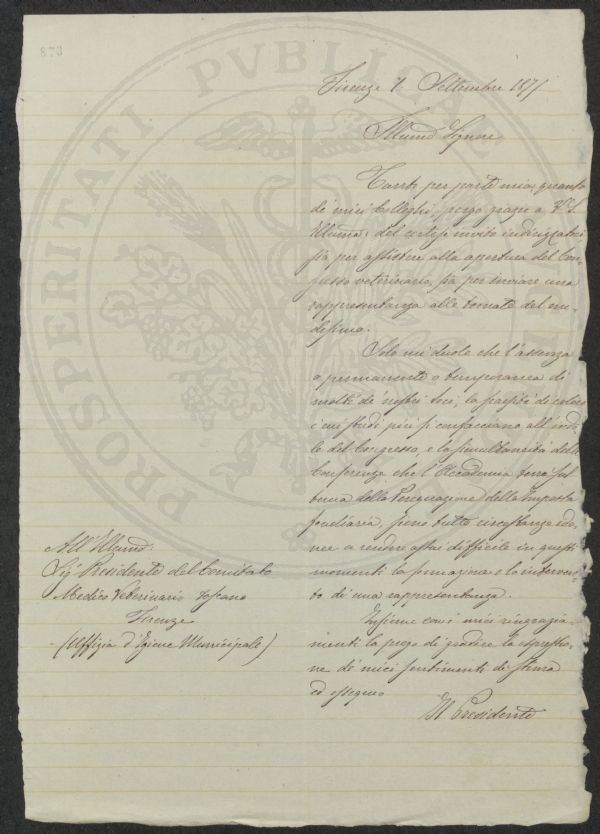 873
PROSPERITATI PVBLICAE
Firenze 7 Settembre 187
Illmo Signore
Tanto per parte mia, quanto
de' miei Colleghi, porgo grazie a V. S.
Illma del cortese invito indirizzatoci
sia per assistere alla apertura del Con-
gresso veterinario, sia per inviare una
rappresentanza alle tornate del me-
desimo.
Solo mi duole che l'assenza
o permanente o temporanea di
molti de' nostri soci, la pochità di coloro
i cui studi più si confacciano all'indo-
le del Congresso, e la simultaneità delle
Conferenze che l'Accademia terrà sul
tema della Perequazione della Imposta
fondiaria, sieno tutte circostanze ido-
nee a rendere assai difficile in questi
momenti la formazione e lo interven-
to di una rappresentanza.
Insieme con i miei ringrazia-
menti la prego di gradire la espressio-
ne de' miei sentimenti di stima
ed ossequio
Il Presidente
All'Illmo
Sig. Presidente del Comitato
Medico Veterinario Toscano
Firenze
(Uffizio d'Igiene Municipale)